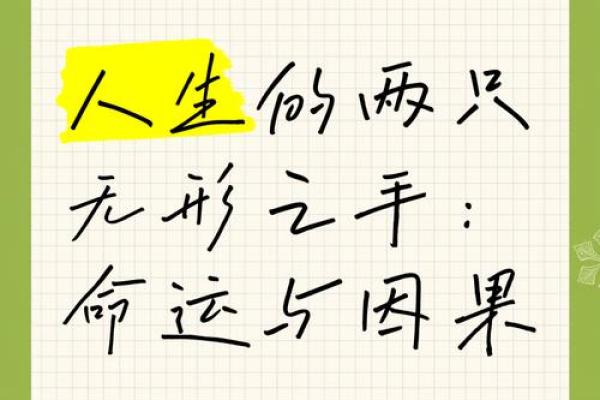 人生的两只
无形之手:
命运与因果